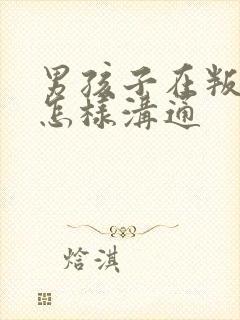 男孩子在叛
怎樣溝通
焓淇